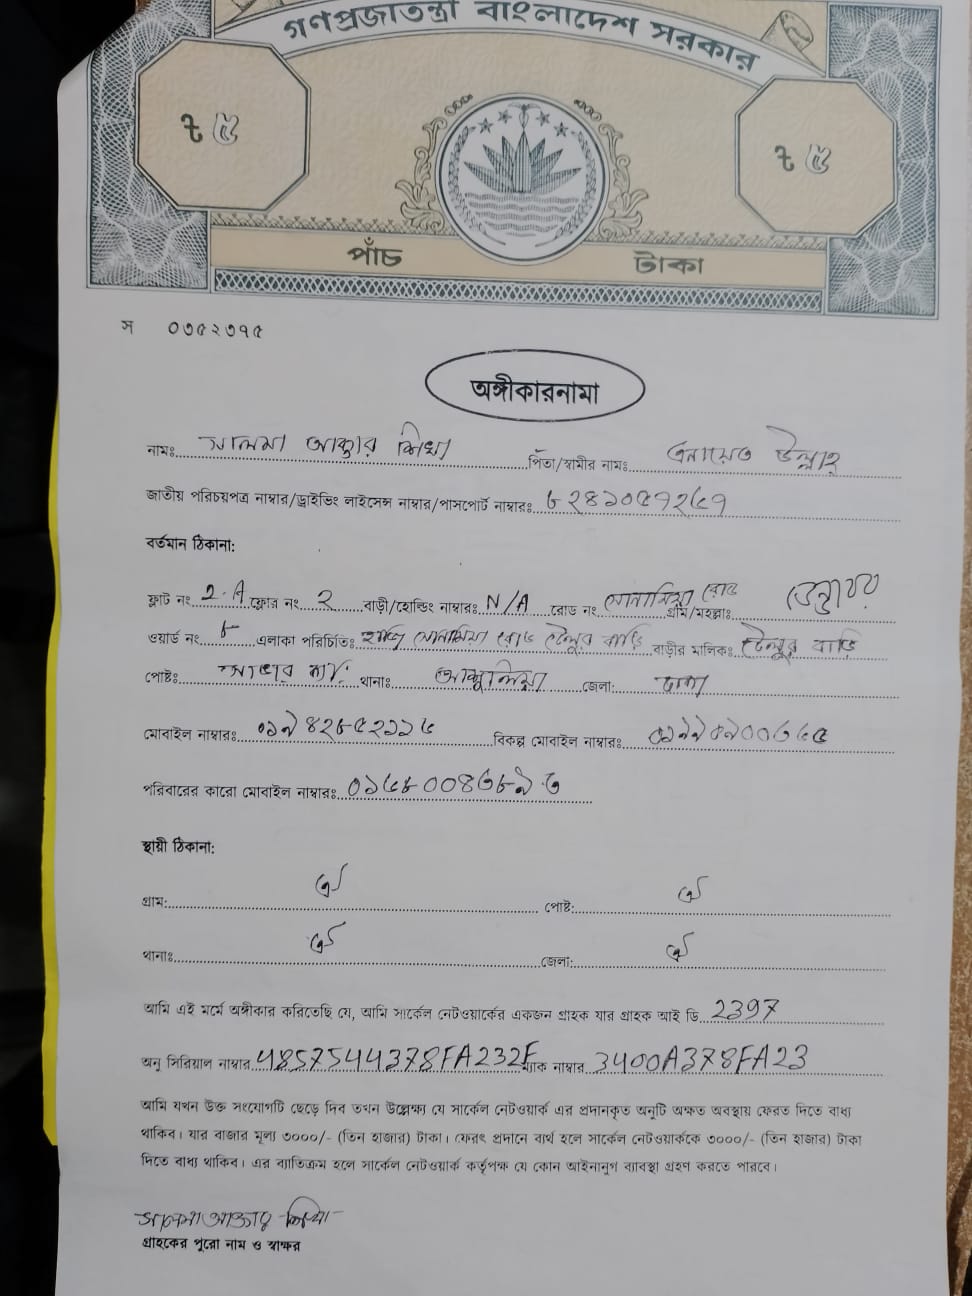 গণপ্রজাতন্ত্রী বাংলাদেশ সরকার
৳ ৫ ৳ ৫
পাঁচ টাকা
স ০৩৫২৩৭৫
অঙ্গীকারনামা
নামঃ সালমা আক্তার শিখা পিতা/স্বামীর নাম: এনায়েত উল্লাহ
জাতীয় পরিচয়পত্র নাম্বার/ড্রাইভিং লাইসেন্স নাম্বার/পাসপোর্ট নাম্বারঃ
বর্তমান ঠিকানা:
ফ্লাট নং 2-A ফ্লোর নং ২ বাড়ী/হোল্ডিং নাম্বারঃ N/A রোড নং সোনামিয়া রোড গ্রাম/মহল্লাঃ
ওয়ার্ড নং ৮ এলাকা পরিচিতিঃ সোনামিয়া রোড টেলুর বাড়ি বাড়ীর মালিকঃ টেলুর বাড়ি
পোষ্টঃ থানাঃ আশুলিয়া জেলা: ঢাকা
মোবাইল নাম্বারঃ বিকল্প মোবাইল নাম্বারঃ
পরিবারের কারো মোবাইল নাম্বারঃ
স্থায়ী ঠিকানা:
গ্রাম: ঐ পোষ্ট: ঐ
থানাঃ ঐ জেলা: ঐ
আমি এই মর্মে অঙ্গীকার করিতেছি যে, আমি সার্কেল নেটওয়ার্কের একজন গ্রাহক যার গ্রাহক আই ডি 2397
অনু সিরিয়াল নাম্বার 4857544378FA232F ম্যাক নাম্বার 3400A378FA23
আমি যখন উক্ত সংযোগটি ছেড়ে দিব তখন উল্লেক্ষ্য যে সার্কেল নেটওয়ার্ক এর প্রদানকৃত অনুটি অক্ষত অবস্থায় ফেরত দিতে বাধ্য
থাকিব। যার বাজার মূল্য ৩০০০/- (তিন হাজার) টাকা। ফেরৎ প্রদানে ব্যর্থ হলে সার্কেল নেটওয়ার্ককে ৩০০০/- (তিন হাজার) টাকা
দিতে বাধ্য থাকিব। এর ব্যতিক্রম হলে সার্কেল নেটওয়ার্ক কর্তৃপক্ষ যে কোন আইনানুগ ব্যবস্থা গ্রহণ করতে পারবে।
সালমা আক্তার শিখা
গ্রাহকের পুরো নাম ও স্বাক্ষর